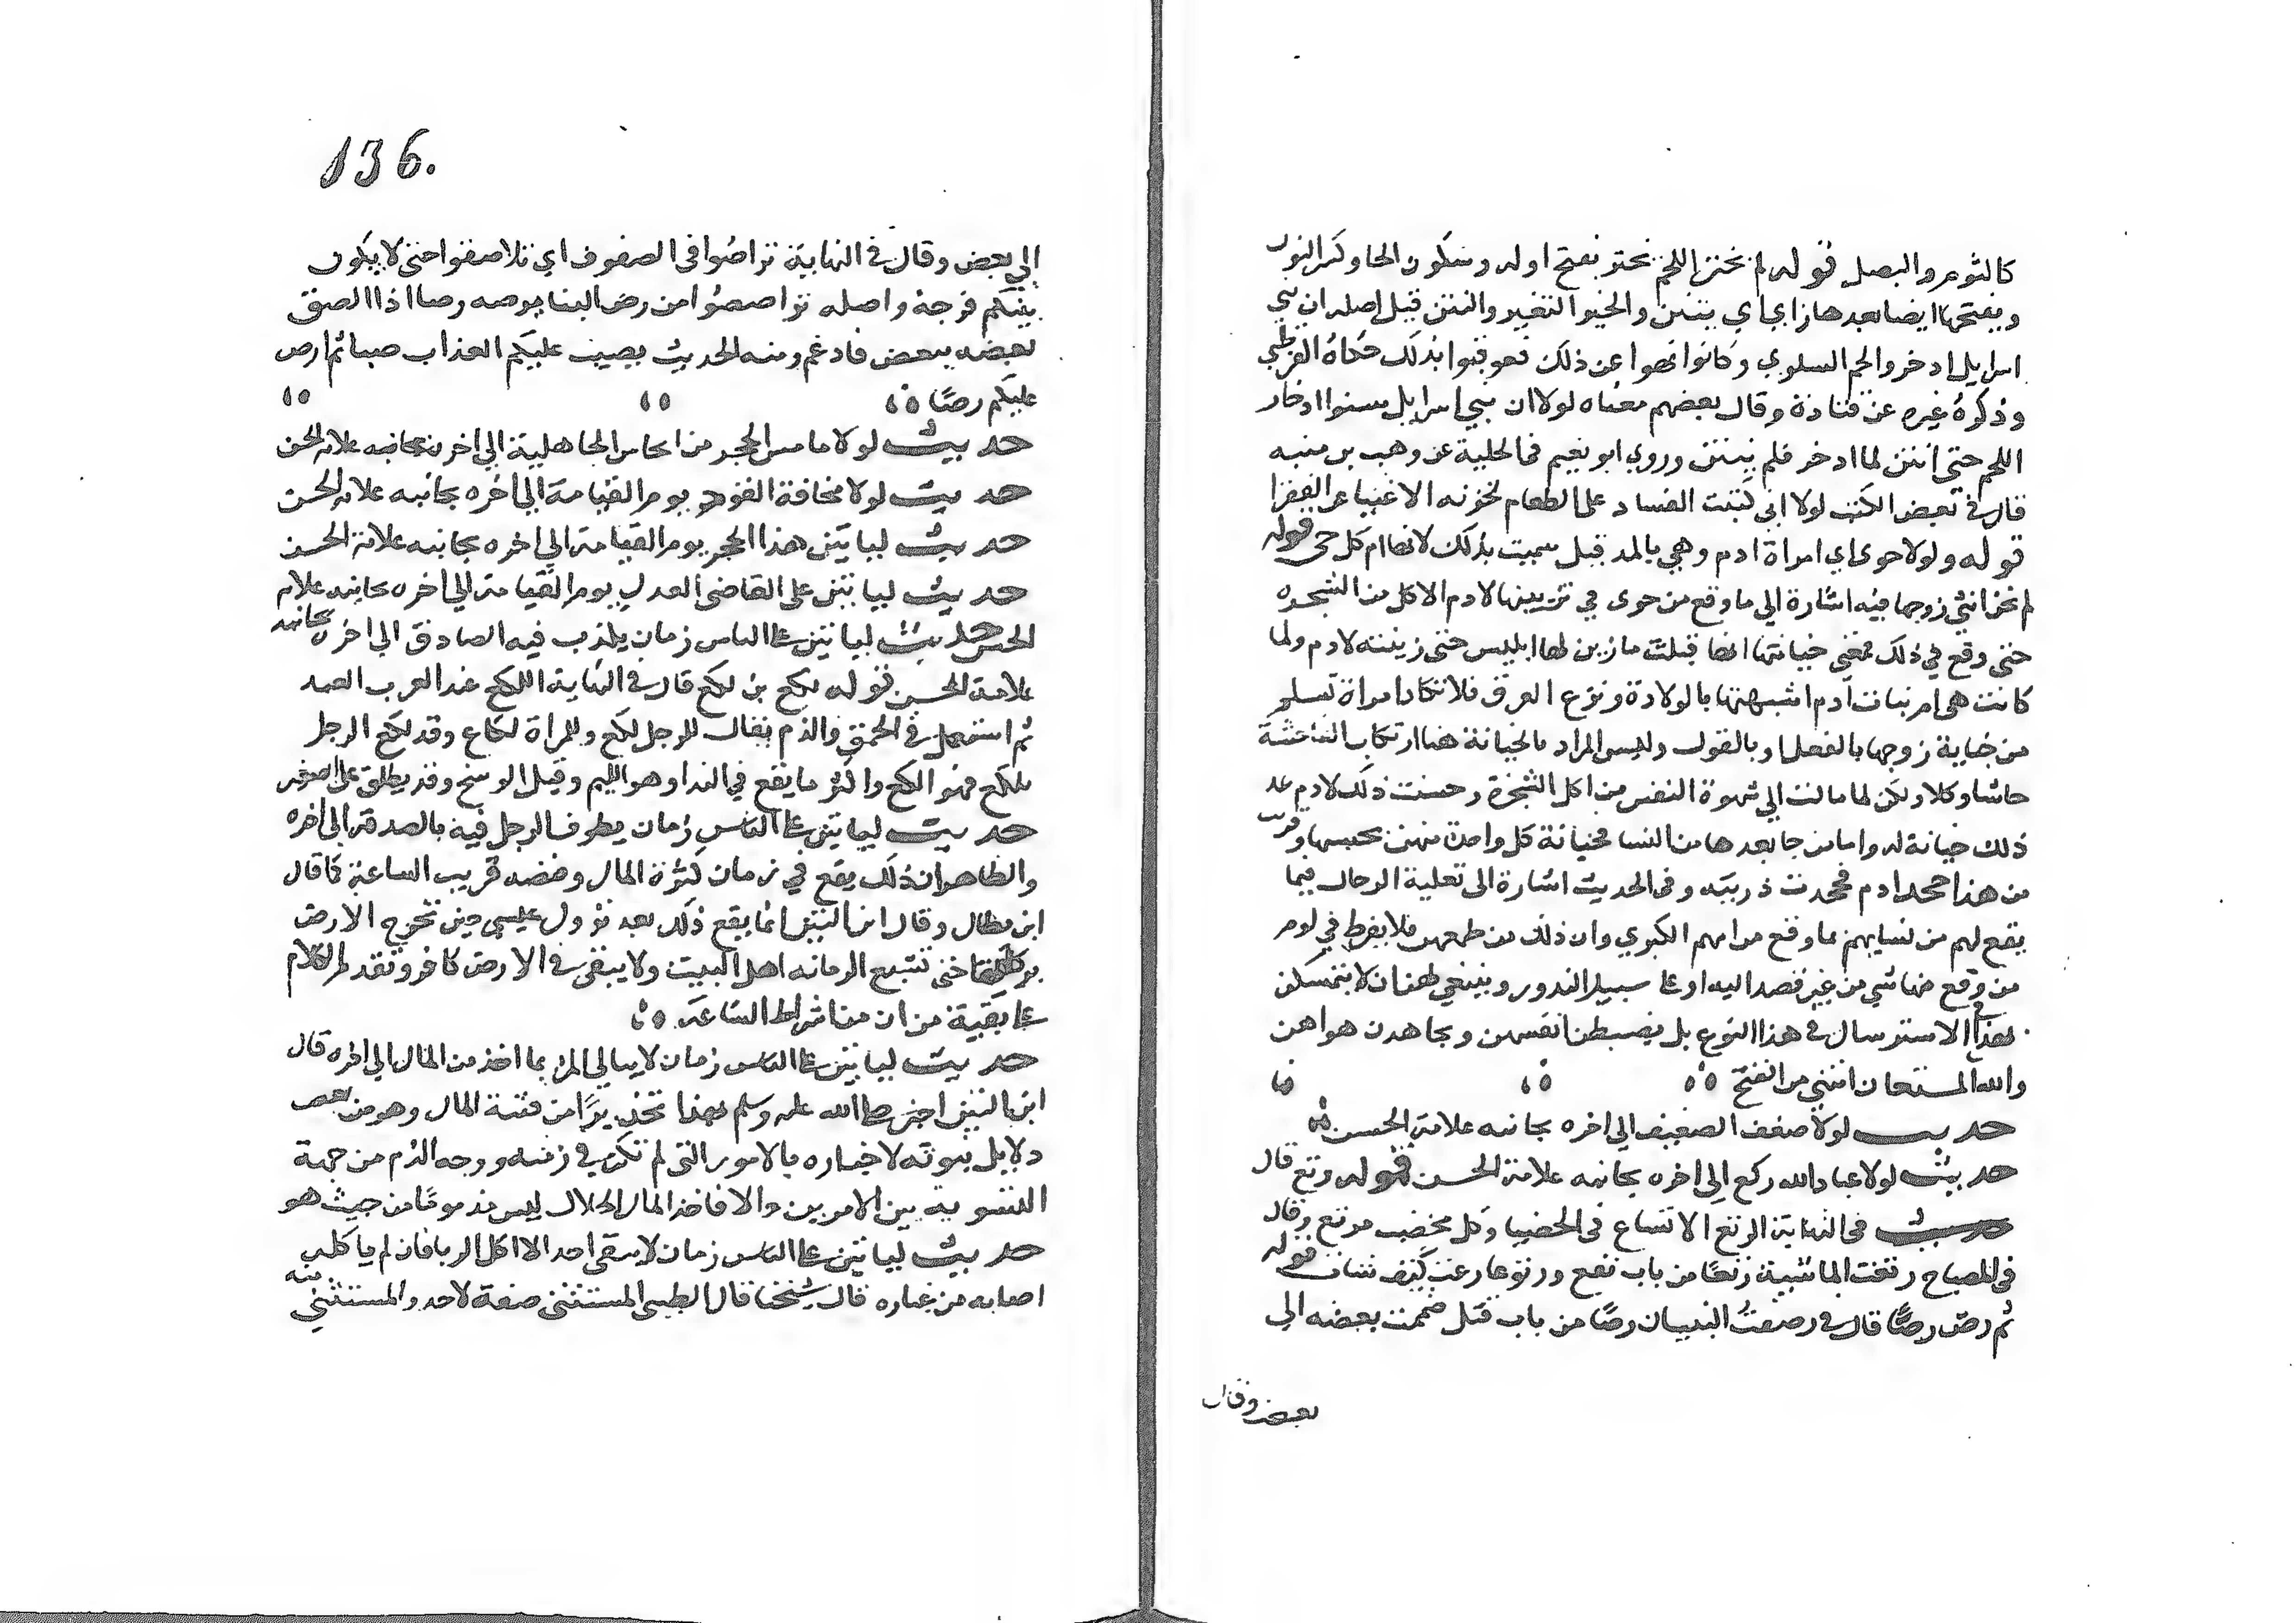 كالثوم والبصل قوله لم يخنز اللحم يخنز بفتح اوله وسكون الخا وكسر النون
وبفتحها ايضا بعدها زاي اي ينتن والخنز التغير والنتن قيل اصله ان بني
اسرايل ادخروا لحم السلوي وكانوا نهوا عن ذلك فعوقبوا بذلك حكاه القرطبي
وذكره غيره عن قتادة وقال بعضهم معناه لولا ان بني اسرايل سنوا ادخار
اللحم حتى انتن لما ادخر فلم ينتن وروي ابو نعيم في الحلية عن وهب بن منبه
قال في بعض الكتب لولا اني كتبت الفساد على الطعام لخزنه الاغنيا عن الفقرا
قوله ولولا حوى اي امراة ادم وهي بالمد قيل سميت بذلك لانها ام كل حي قوله
لم تخن انثي زوجها فيه اشارة الي ما وقع من حوى في تزيينها لادم الاكل من الشجره
حتى وقع في ذلك فمعني خيانتها انها قبلت ما زين لها ابليس حتى زينته لادم ولما
كانت هي ام بنات آدم اشبهنها بالولادة ونزع العرق فلا تكاد امراة تسلم
من خيانة زوجها بالفعل او بالقول وليس المراد بالخيانة هنا ارتكاب الفاحشة
حاشا وكلا ولكن لما مالت الي شهوة النفس من اكل الشجرة وحسنت ذلك لادم عد
ذلك خيانة له واما من جا بعدها من النسا فخيانة كل واحدة منهن بحسبها وقريب
من هذا جحد ادم فجحدت ذريته وفى الحديث اشارة الى تسلية الرجال فيما
يقع لهم من نسايهم بما وقع من امهم الكبري وان ذلك من طبعهن فلا يفرط في لوم
من وقع منها شي من غير قصد اليه او على سبيل الندور وينبغي لهن ان لا يتمسكن
بهذا الاسترسال في هذا النوع بل يضبطن انفسهن ويجاهدن هواهن
والله المستعان انتهي من الفتح
حديث لولا ضعف الضعيف الي اخره بجانبه علامة الحسن
حديث لولا عباد الله ركع الي اخره بجانبه علامة الحسن قوله رتع قال
في النهاية الرتع الاتساع في الخصب وكل مخصب مرتع وقال
في المصباح رتعت الماشية رتعا من باب نفع ورتوعا رعت كيف شات قوله
ثم رص رصا قال في رصصت البنيان رصا من باب قتل ضممت بعضه الي
بعض وقال
136.
الي بعض وقال في النهاية تراصوا في الصفوف اي تلاصقوا حتى لا يكون
بينكم فرجة واصله تراصصوا من رص البنا يرصه رصا اذا الصق
بعضه ببعض فادغم ومنه الحديث يصيب عليكم العذاب صبا ثم ارص
عليكم رصا
حديث لولا ما مس الحجر من انجاس الجاهلية الي اخره بجانبه علامة الحسن
حديث لولا مخافة القود يوم القيامة الي اخره بجانبه علامة الحسن
حديث لياتين هذا الحجر يوم القيامة الي اخره بجانبه علامة الحسن
حديث لياتين على القاضي العدل يوم القيامة الي اخره بجانبه علامة
الحسن حديث لياتين على الناس زمان يكذب فيه الصادق الي اخره بجانبه
علامة الحسن قوله لكع بن لكع قال في النهاية اللكع عند العرب العبد
ثم استعمل في الحمق والذم يقال للرجل لكع وللمراة لكاع وقد لكع الرجل
يلكع فهو الكع واكثر ما يقع في الندا وهو الليم وقيل الوسخ وقد يطلق على الصغير
حديث لياتين على الناس زمان يطوف الرجل فيه بالصدقة الي اخره
والظاهر ان ذلك يقع في زمان كثرة المال وفيضه قريب الساعة كما قال
ابن بطال وقال ابن التين انما يقع ذلك بعد نزول عيسى حين تخرج الارض
بركتها حتى تشبع الرمانه اهل البيت ولا يبقى في الارض كافر وتقدم الكلام
على بقية من ان من اشراط الساعة
حديث لياتين على الناس زمان لا يبالي المرء بما اخذ من المال الي اخره قال
ابن التين اخبر صلى الله عليه وسلم بهذا تحذيرا من فتنة المال وهو من بعض
دلايل نبوته لاخباره بالامور التي لم تكن في زمنه ووجه الذم من جهة
التسوية بين الامرين والا فاخذ المال الحلال ليس مذموما من حيث هو
حديث لياتين على الناس زمان لا يبقى احد الا اكل الربا فان لم ياكله
اصابه من غباره قال شيخنا قال الطيبي المستثنى صفة لاحد والمستثني منه